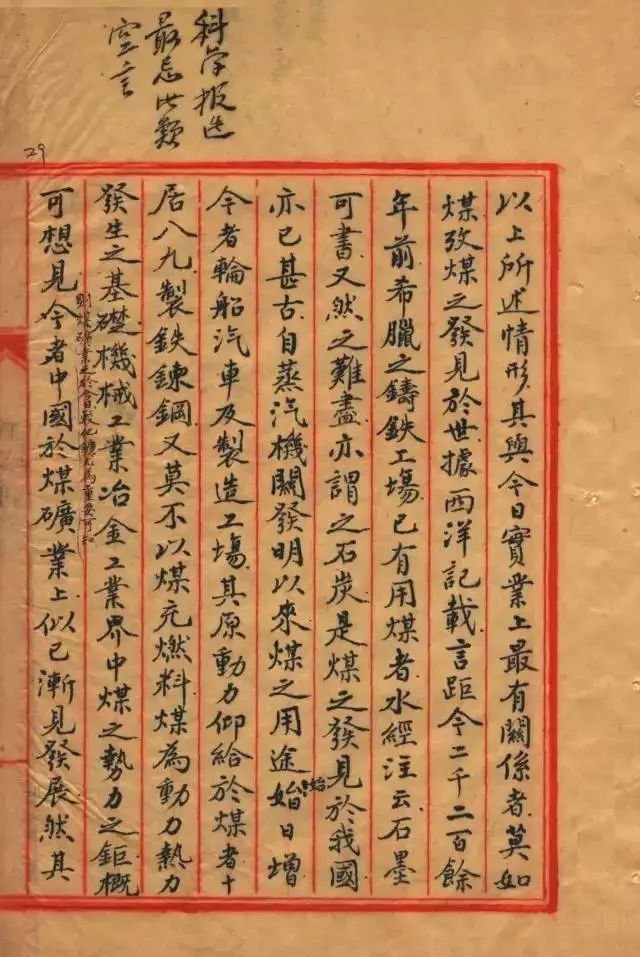 科学报告
最忌此類
空言
29
以上所述情形其與今日實業上最有關係者莫如
煤攷煤之發見於世據西洋記載言距今二千二百餘
年前希臘之鑄鉄工塲已有用煤者水經注云石墨
可書又然之難盡亦謂之石炭是煤之發見於我國
亦已甚古自蒸汽機關發明以來煤之用途始日增
今者輪船汽車及製造工塲其原動力仰給於煤者十
居八九製鉄鍊鋼又莫不以煤充燃料煤為動力熱力
發生之基礎機械工業冶金工業界中煤之勢力之鉅概
可想見今者中國於煤礦業上似已漸見發展然其
則煤礦業之於今日較他鑛尤為重要可知